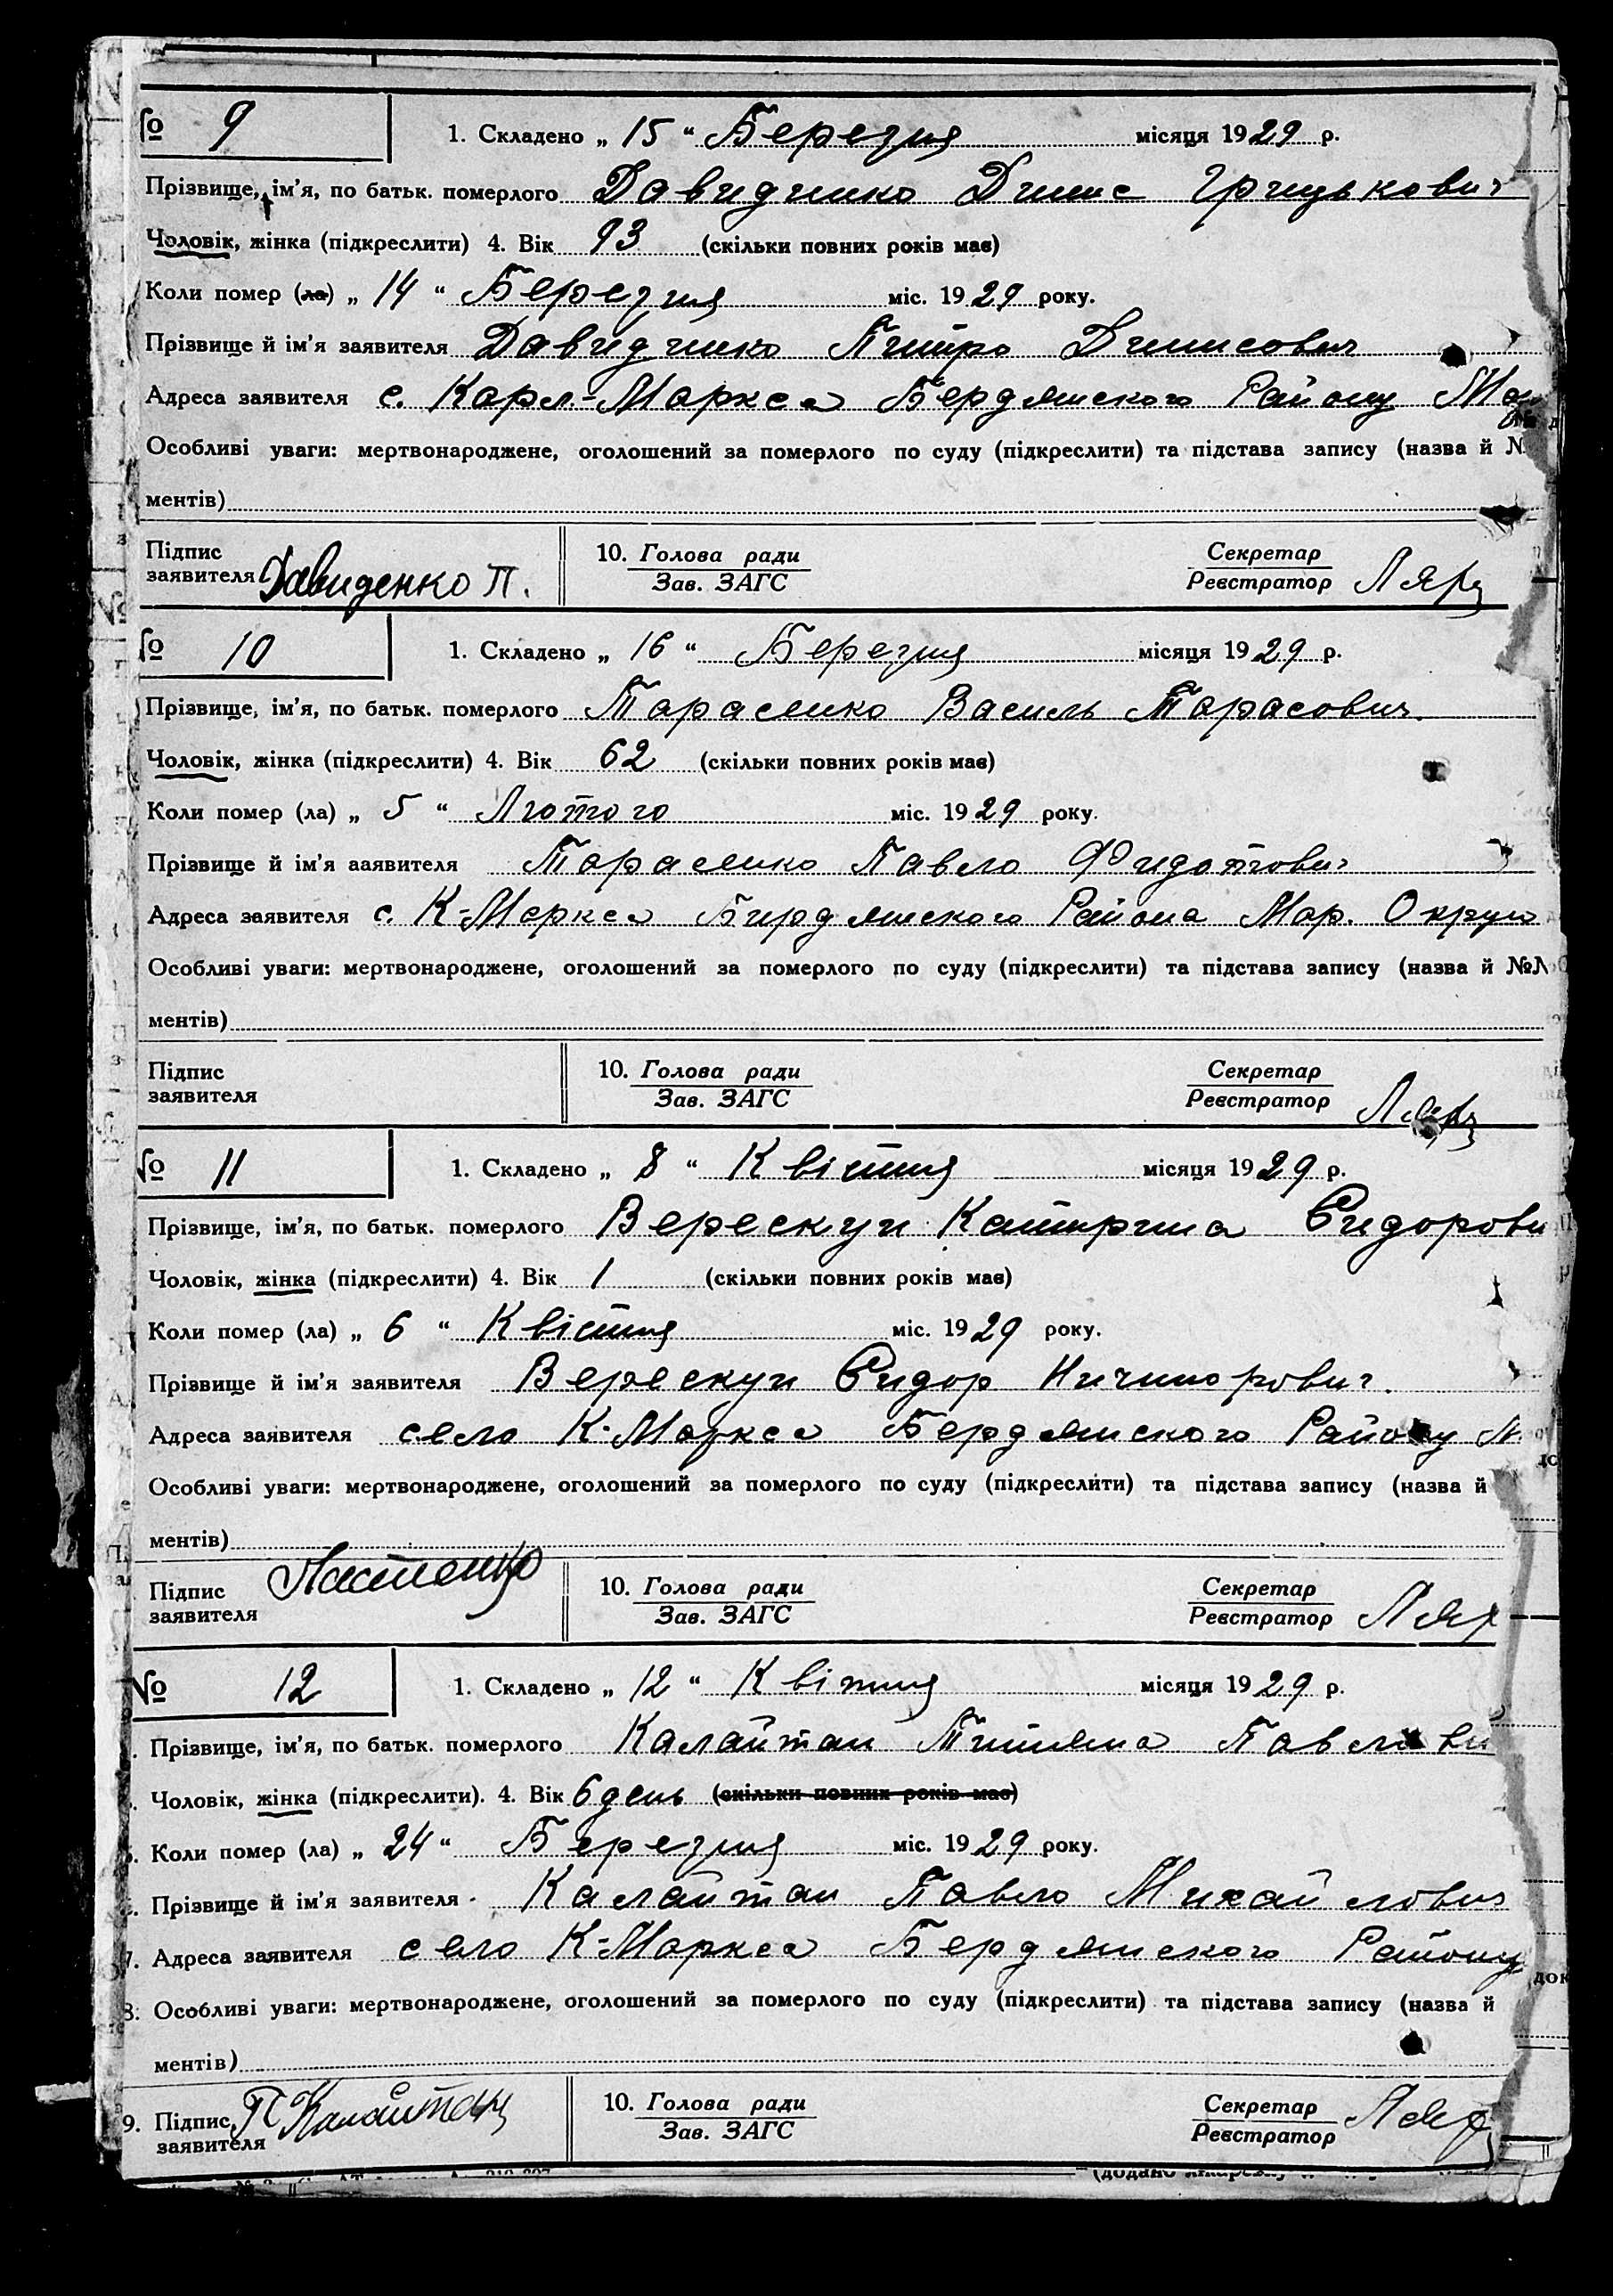 № 9 1. Складено „ 15 “ Березня місяця 1929 р.
Прізвище, ім’я, по батьк. померлого Давидинко Динис Грицькович
Чоловік, жінка (підкреслити) 4. Вік 93 (скільки повних років має)
Коли помер (ла) „ 14 “ Березня міс. 1929 року.
Прізвище й ім’я заявителя Давидинко Питро Динисович
Адреса заявителя с. Карл.-Маркса Бердянского Району
Особливі уваги: мертвонароджене, оголошений за померлого по суду (підкреслити) та підстава запису (назва й №
ментів)
Підпис заявителя Давиденко П. 10. Голова ради Зав. ЗАГС Секретар Реєстратор
№ 10 1. Складено „ 16 “ Березня місяця 1929 р.
Прізвище, ім’я, по батьк. померлого Тарасинко Василь Тарасович.
Чоловік, жінка (підкреслити) 4. Вік 62 (скільки повних років має)
Коли помер (ла) „ 5 “ Лютого міс. 1929 року.
Прізвище й ім’я ааявителя Тарасинко Павло Фидотович
Адреса заявителя с. К-Маркса Бирдянского Района Мар. Округи
Особливі уваги: мертвонароджене, оголошений за померлого по суду (підкреслити) та підстава запису (назва й №№
ментів)
Підпис заявителя 10. Голова ради Зав. ЗАГС Секретар Реєстратор
№ 11 1. Складено „ 8 “ Квітня місяця 1929 р.
Прізвище, ім’я, по батьк. померлого Верескун Катирина Сидорови
Чоловік, жінка (підкреслити) 4. Вік 1 (скільки повних років має)
Коли помер (ла) „ 6 “ Квітня міс. 1929 року.
Прізвище й ім’я заявителя Верескун Сидор Ничипорович.
Адреса заявителя село К-Маркса Бердянского Району М
Особливі уваги: мертвонароджене, оголошений за померлого по суду (підкреслити) та підстава запису (назва й
ментів)
Підпис заявителя 10. Голова ради Зав. ЗАГС Секретар Реєстратор
№ 12 1. Складено „ 12 “ Квітня місяця 1929 р.
Прізвище, ім’я, по батьк. померлого Калайтан Титяна Павлови
Чоловік, жінка (підкреслити). 4. Вік 6 день (скільки повних років має)
Коли помер (ла) „ 24 “ Березня міс. 1929 року.
Прізвище й ім’я заявителя Калайтан Павло Михайлович
7. Адреса заявителя село К-Маркса Бердянского Району
8. Особливі уваги: мертвонароджене, оголошений за померлого по суду (підкреслити) та підстава запису (назва й
ментів)
9. Підпис заявителя П Калайтан 10. Голова ради Зав. ЗАГС Секретар Реєстратор